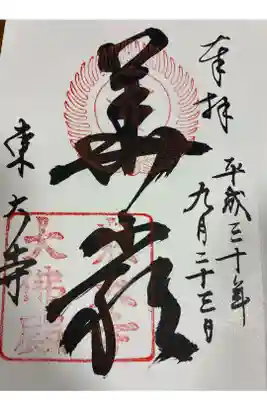 奉拝
平成三十年
九月二十三日
華厳
東大寺
東大寺
大佛殿